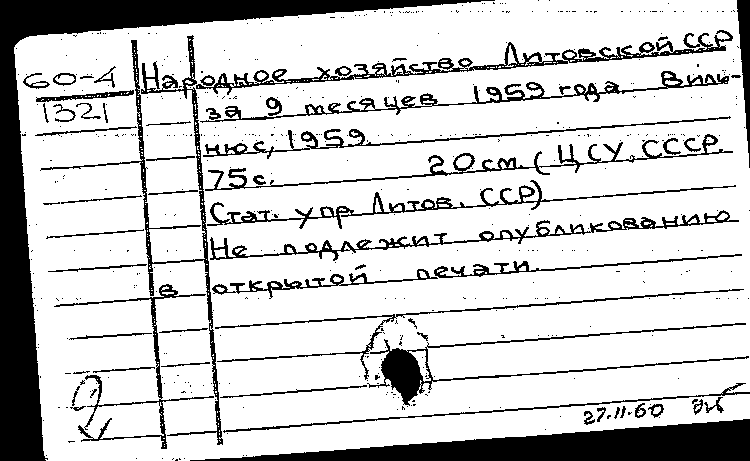 60-4 Народное хозяйство Литовской ССР
1321 за 9 месяцев 1959 года. Виль-
нюс, 1959.
75с. 20 см. (ЦСУ. СССР.
Стат. упр. Литов. ССР)
Не подлежит опубликованию
в открытой печати.
2
27.11.60